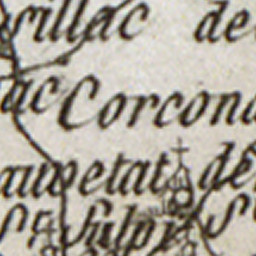 sillac de
ac Corcona
auvetat de
St. Sulpi S